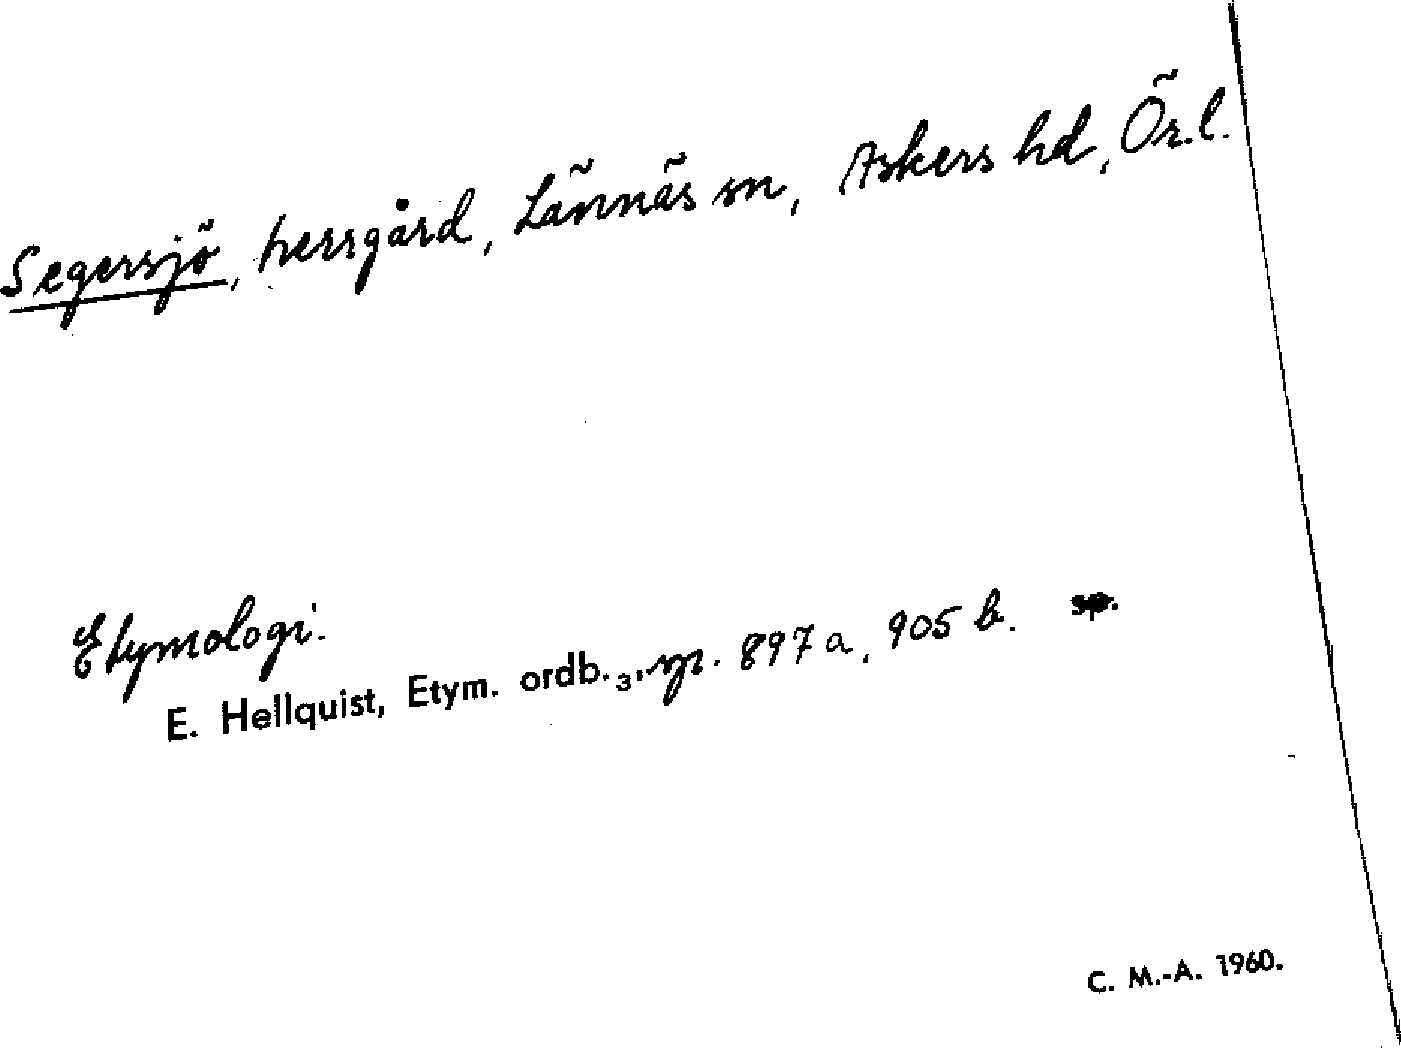 Segersjö, herrgård, Lännäs sn, Askers hd, Ör.l.
Etymologi.
E. Hellquist, Etym. ordb. 3, sp. 897 a, 905 b. sp.
C. M.-A. 1960.